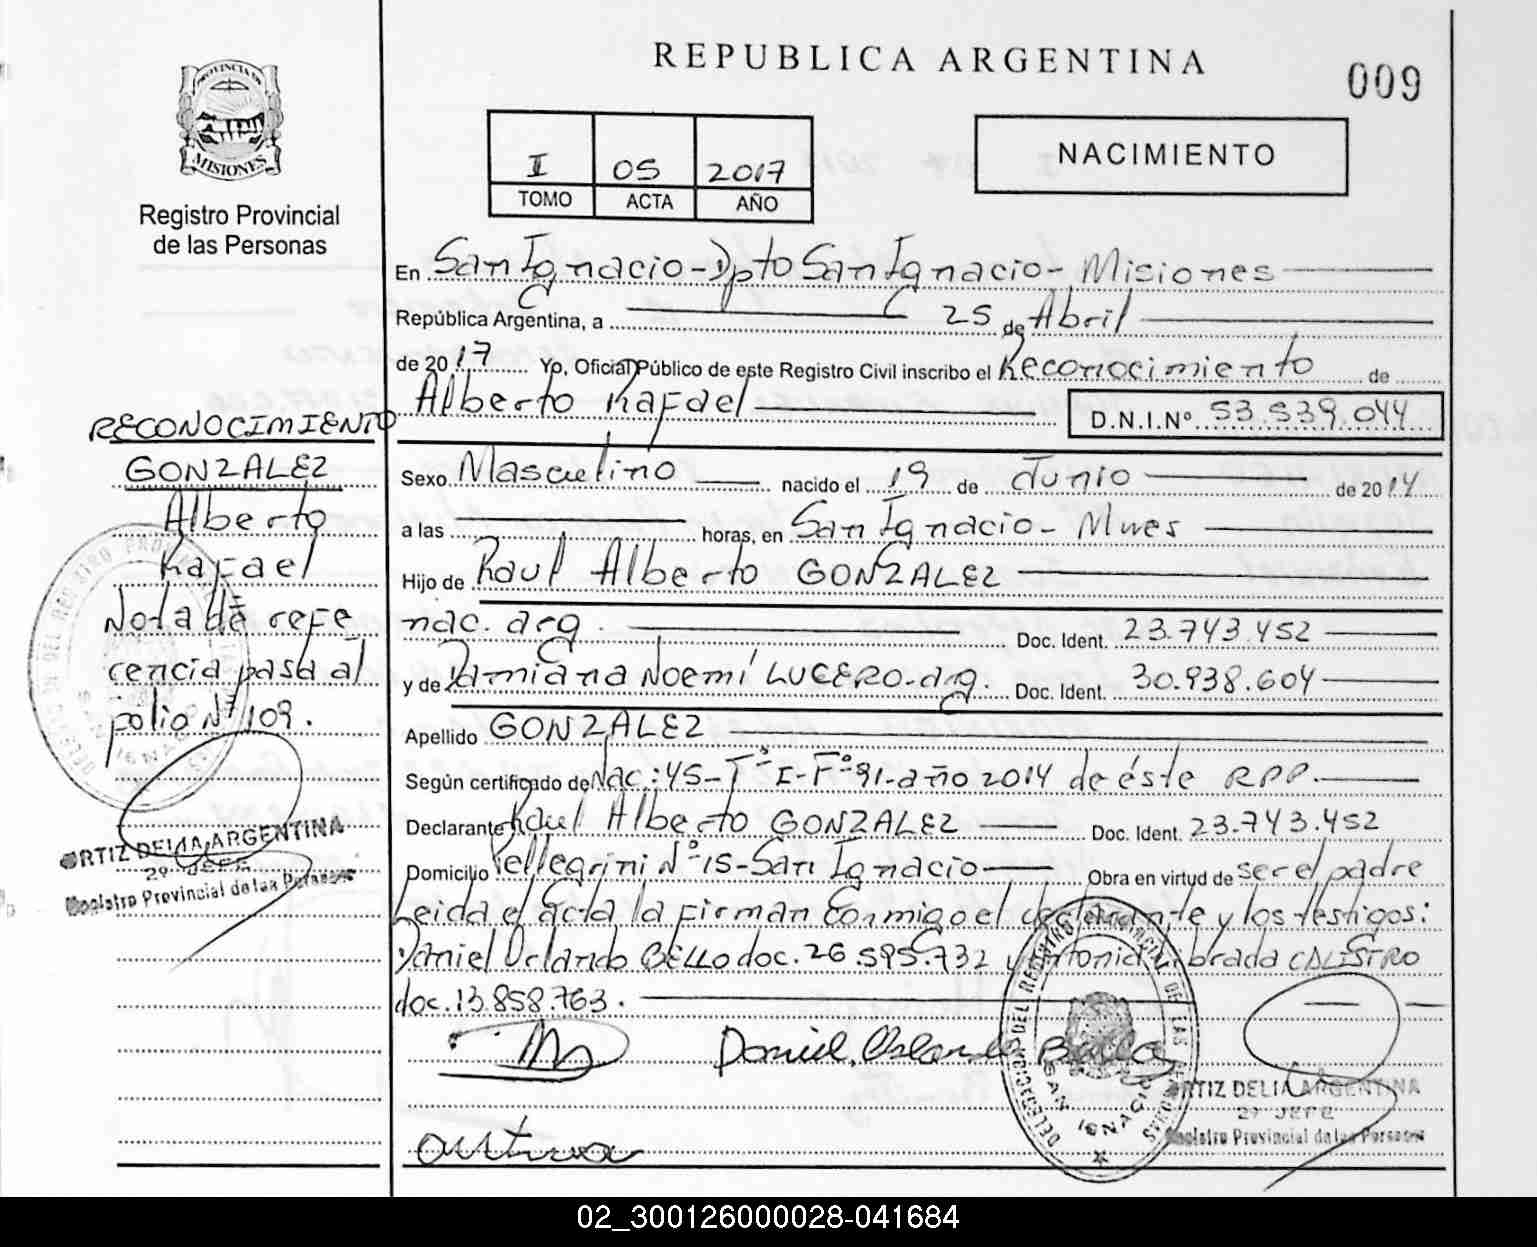 REPUBLICA ARGENTINA
009
PROVINCIA DE
MISIONES
Registro Provincial
de las Personas
I 05 2017
TOMO ACTA AÑO
NACIMIENTO
En San Ignacio - Dpto San Ignacio - Misiones
República Argentina, a 25 de Abril
de 2017 Yo, Oficial Público de este Registro Civil inscribo el Reconocimiento de
Alberto Rafael D.N.I.Nº 53.539.044
Sexo Masculino nacido el 19 de Junio de 2014
a las horas, en San Ignacio - Mnes
Hijo de Raul Alberto GONZALEZ
nac. arg. Doc. Ident. 23.743.452
y de Damiana Noemí LUCERO - arg. Doc. Ident. 30.938.604
Apellido GONZALEZ
Según certificado de Nac.: 45 - Tº I - Fº 91 - año 2014 de éste RPP.
Declarante Raul Alberto GONZALEZ Doc. Ident. 23.743.452
Domicilio Pellegrini Nº 15 - San Ignacio Obra en virtud de ser el padre
Leida el Acta la firman conmigo el declarante y los testigos:
Daniel Orlando BELLO doc. 26.595.732 y Antonia Librada CALISTRO
doc. 13.858.763.
Daniel Orlando Bello
RECONOCIMIENTO
GONZALEZ
Alberto
Rafael
Nota de refe
rencia pasa al
folio Nº 109.
ORTIZ DELIA ARGENTINA
2º JEFE
Registro Provincial de las Personas
DELEGACION DEL REGISTRO PROVINCIAL DE LAS PERSONAS
SAN IGNACIO
ORTIZ DELIA ARGENTINA
2º JEFE
Registro Provincial de las Personas
02_300126000028-041684